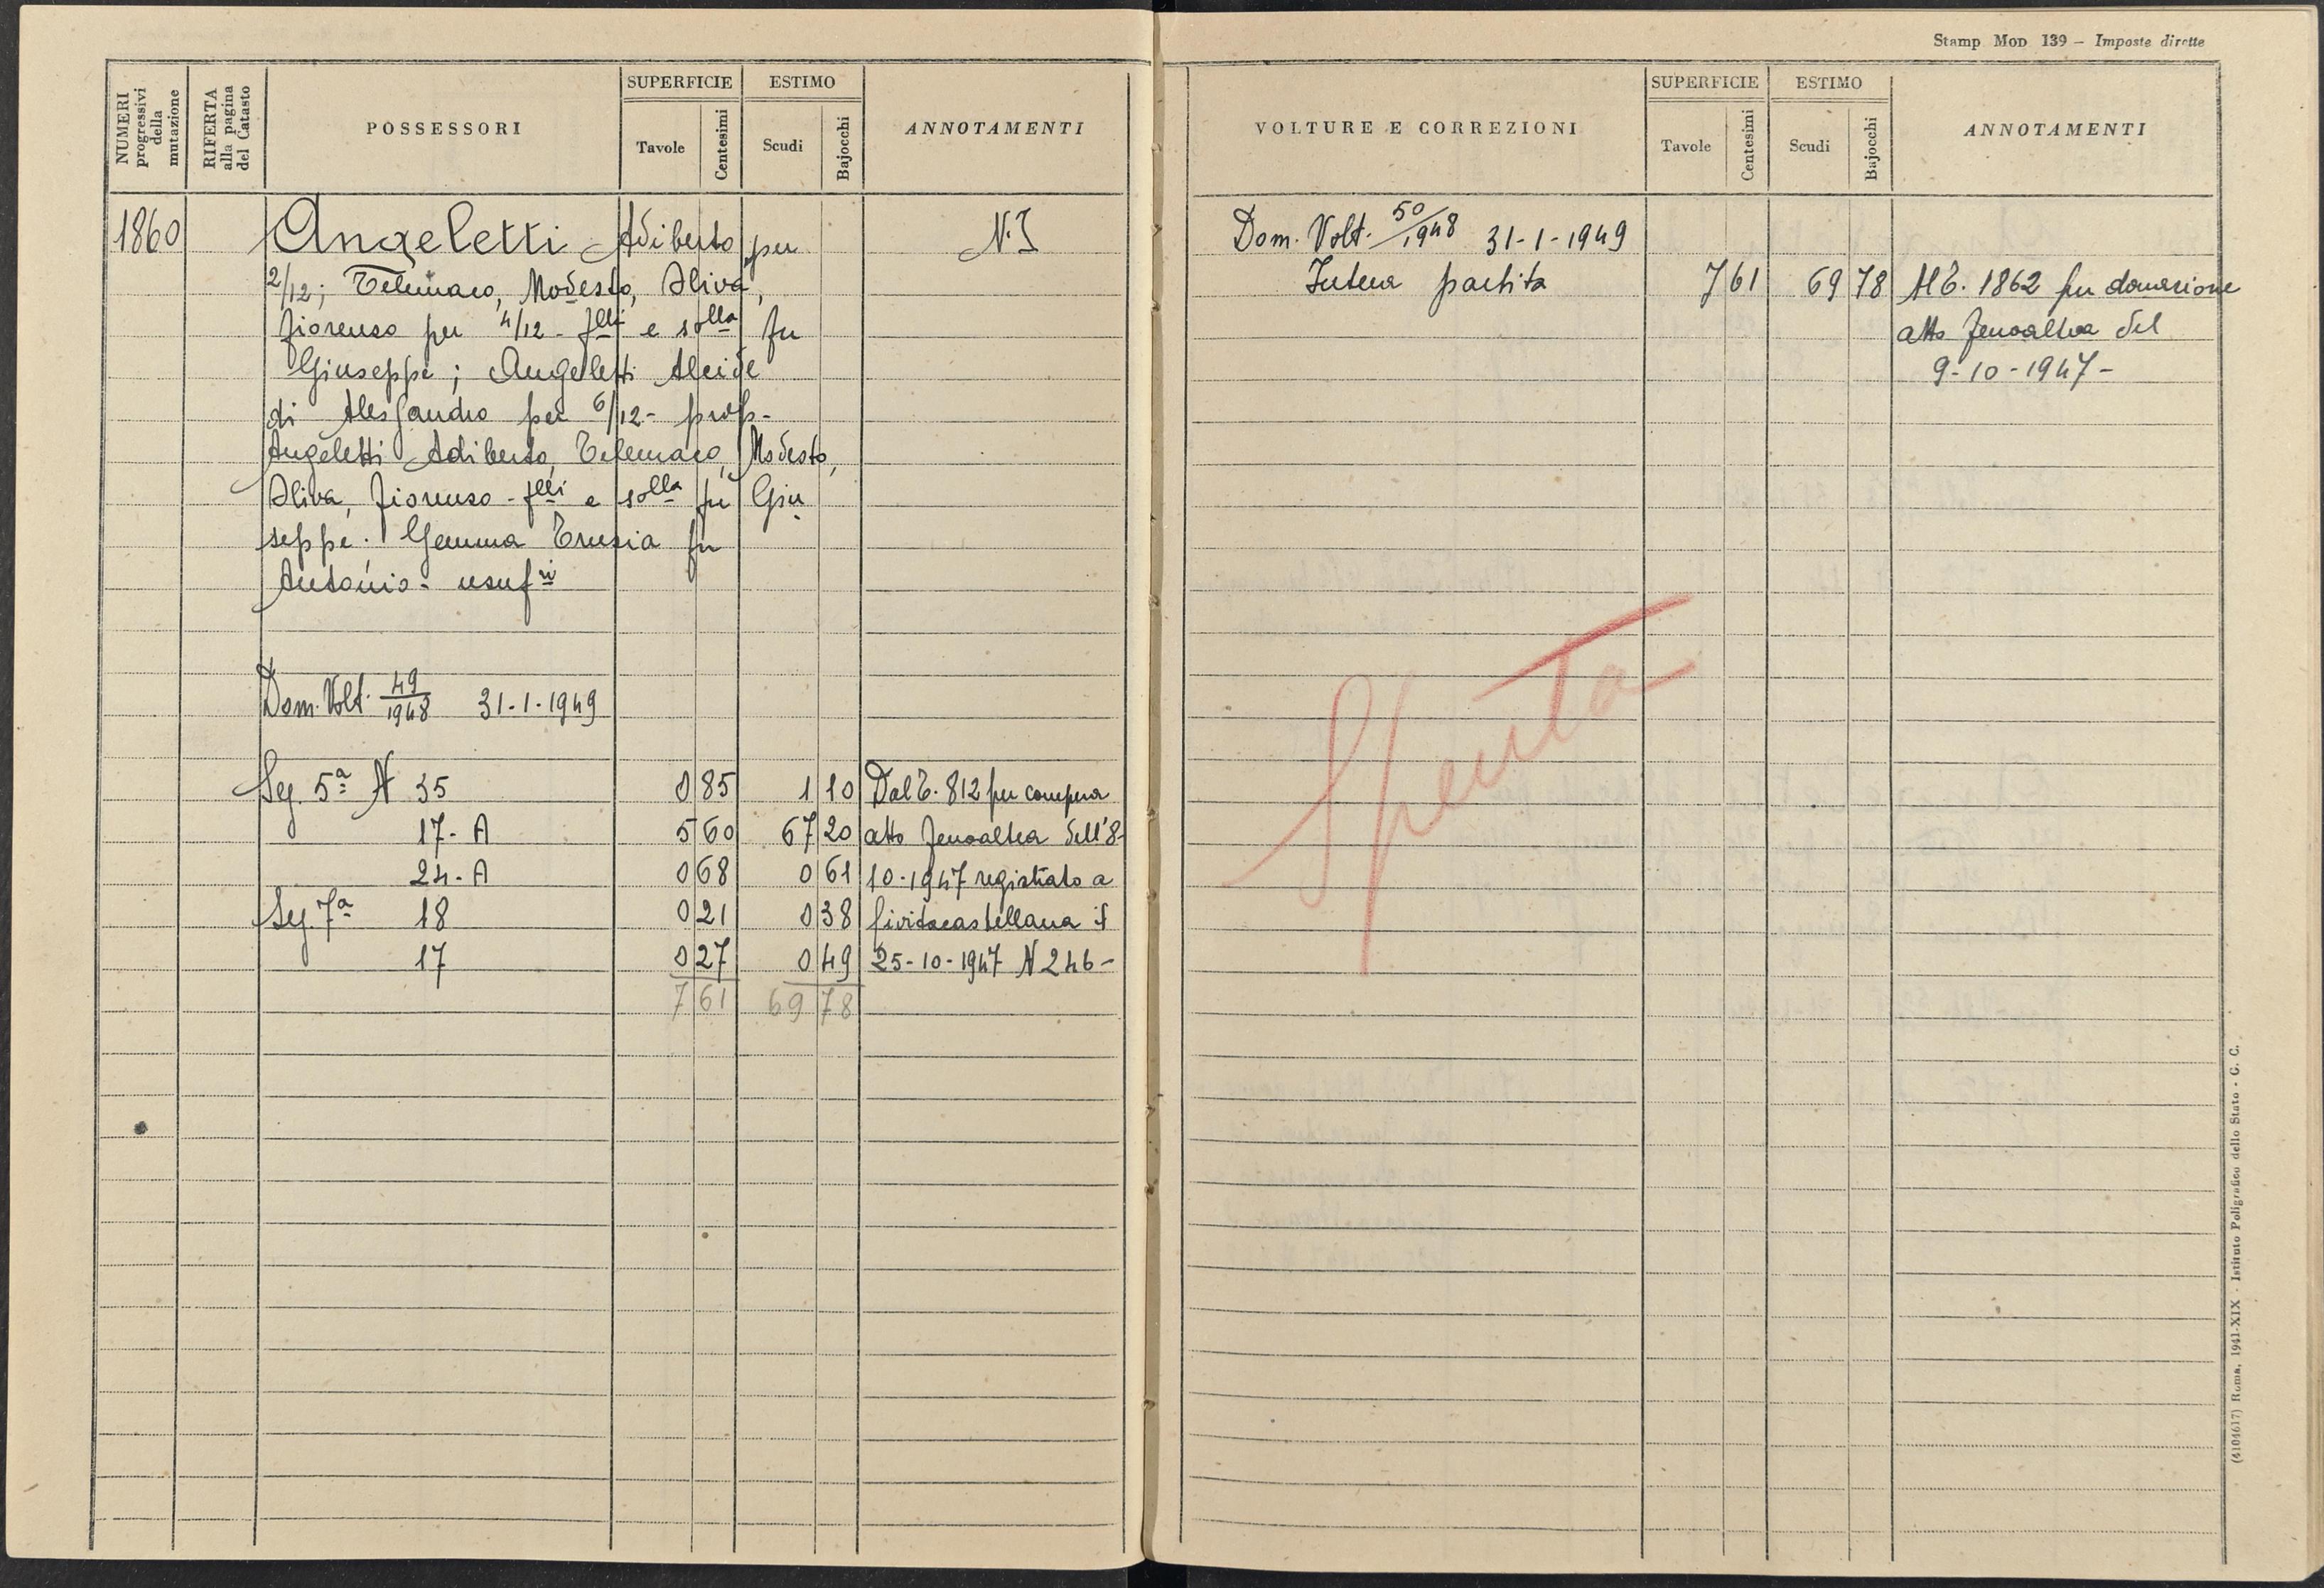 NUMERI progressivi della mutazione
RIFERTA alla pagina del Catasto
POSSESSORI
SUPERFICIE
Tavole
Centesimi
ESTIMO
Scudi
Bajocchi
ANNOTAMENTI
1860 Angeletti Adiberto per N.I
2/12; Telemaco, Modesto, Oliva,
Fiorenzo per 4/12 - flli e solla fu
Giuseppe; Angeletti Alcide
di Alessandro per 6/12 - prop.
Angeletti Adiberto, Telemaco, Modesto,
Oliva, Fiorenzo - flli e solla fu Giu
seppe. Gemma Ersia fu
Antonio - usuf
Dom. Volt. 49/1948 31-1-1949
Sez. 5ª N 35 0 85 1 10 Dal T. 812 per compra
17-A 5 60 67 20 atto Fenoaltea dell'8-
24-A 0 68 0 61 10-1947 registrato a
Sez. 7ª 18 0 21 0 38 Civitacastellana il
17 0 27 0 49 25-10-1947 N 246-
7 61 69 78
Stamp Mod 139 - Imposte dirette
VOLTURE E CORREZIONI
SUPERFICIE
Tavole
Centesimi
ESTIMO
Scudi
Bajocchi
ANNOTAMENTI
Dom. Volt. 50/1948 31-1-1949
Intera partita 7 61 69 78 Al T. 1862 per donazione
atto Fenoaltea del
9-10-1947-
Spenta
(4104617) Roma, 1941-XIX - Istituto Poligrafico dello Stato - G. C.